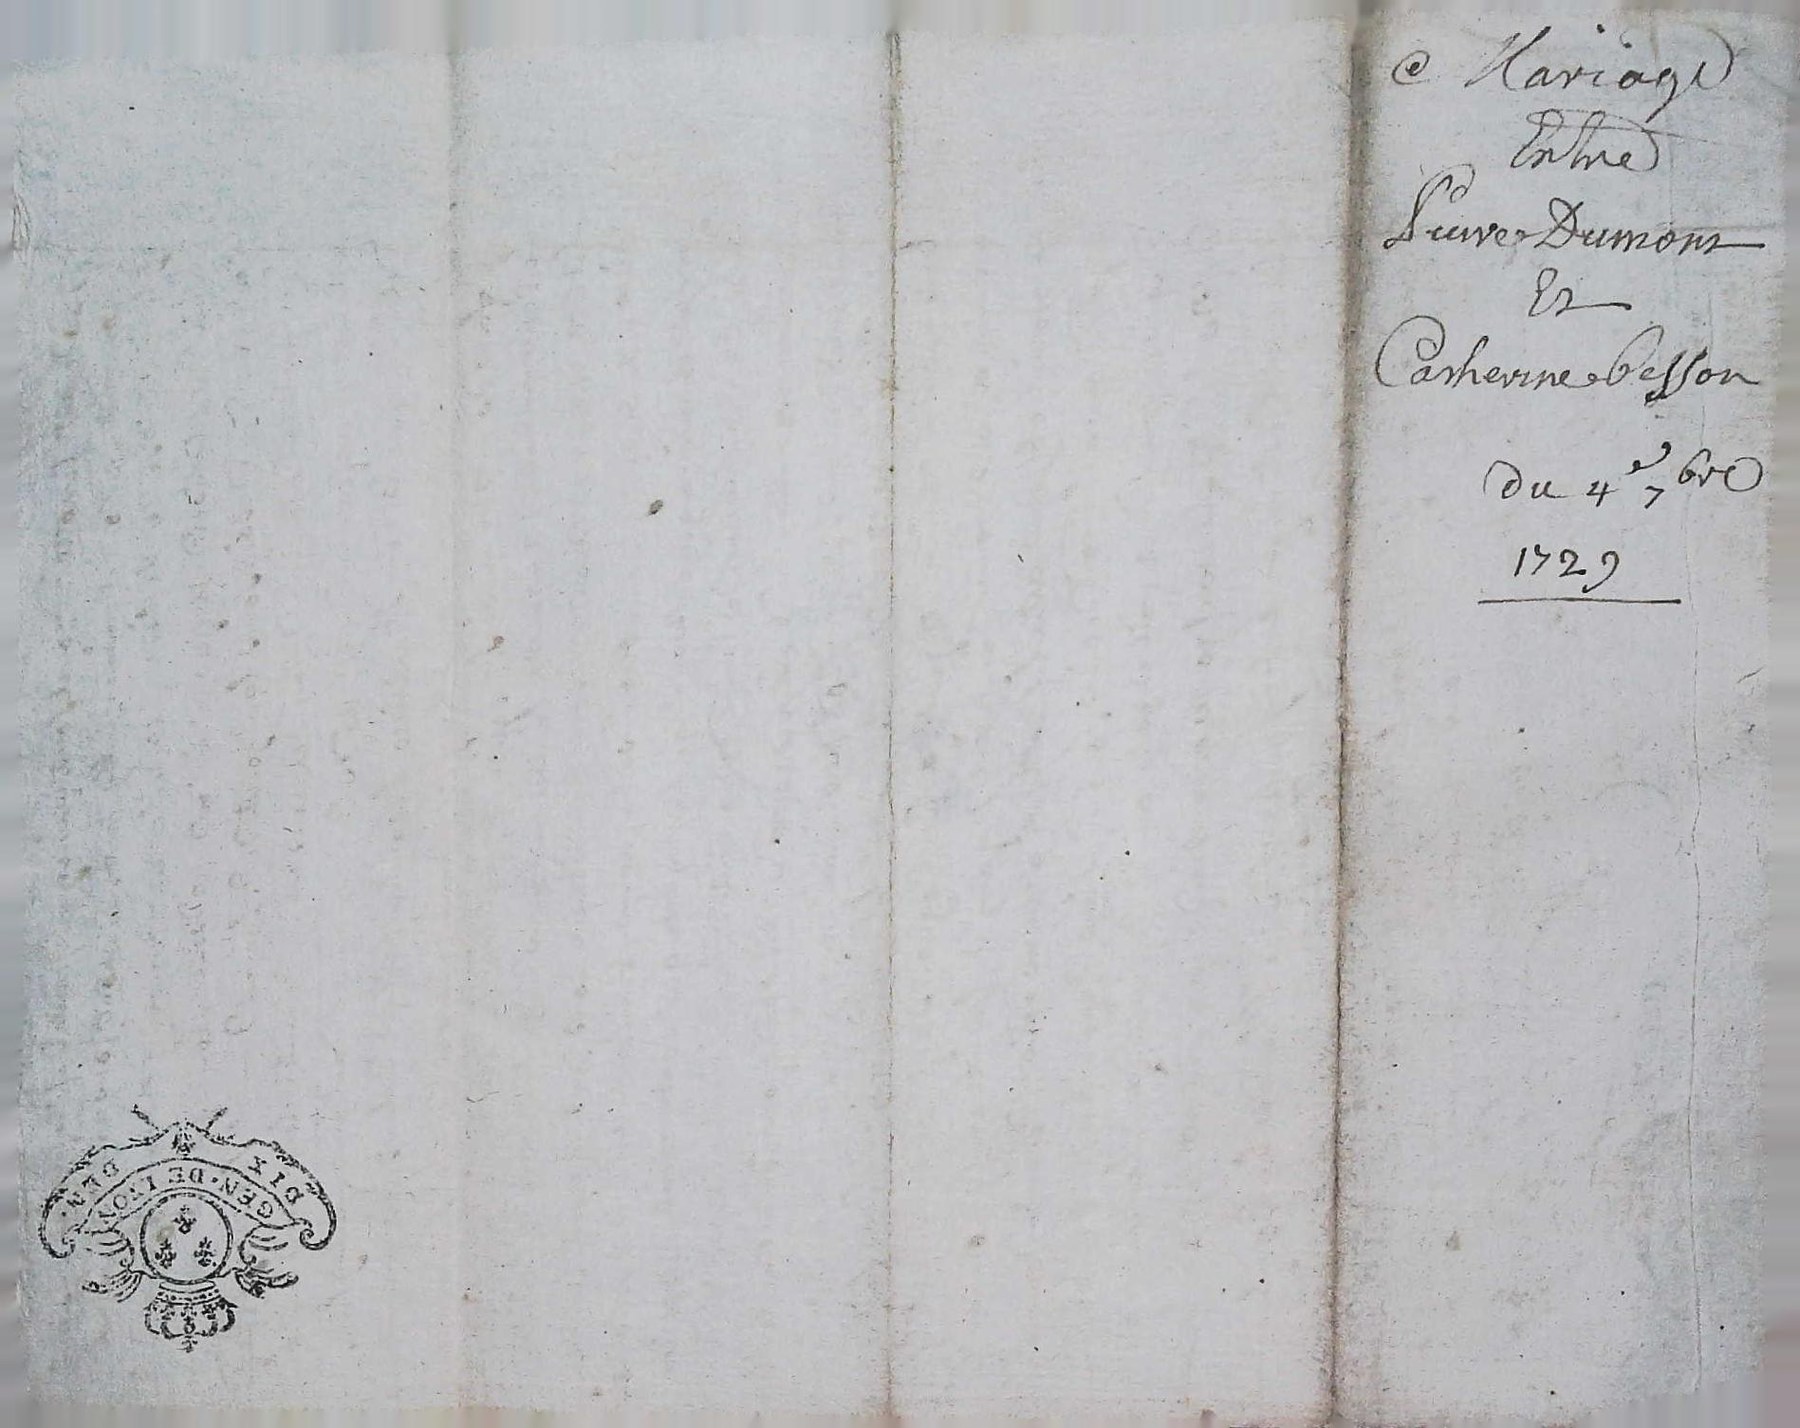 Mariage
Entre
Pierre Dumont
Et
Catherine besson
du 4e 7bre
1729
DIX DEN.
GEN. DE LYON